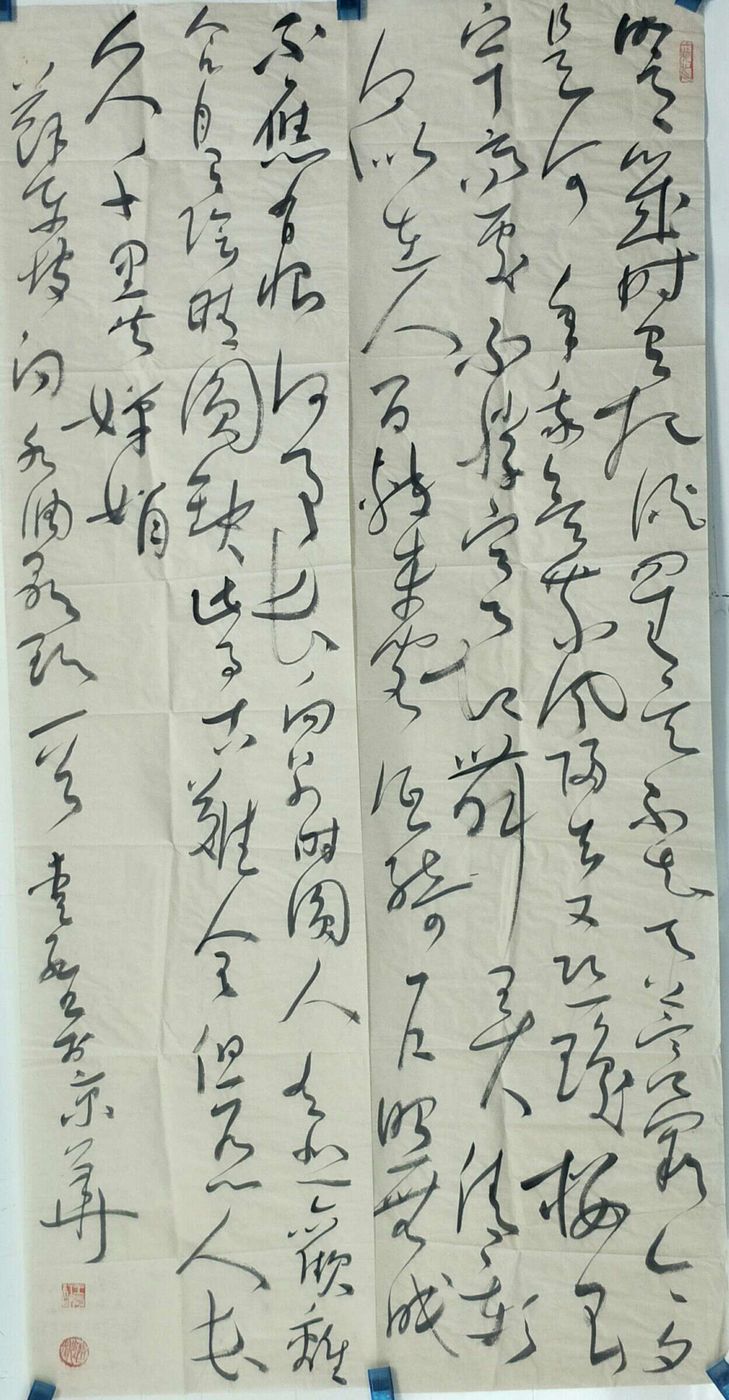 明月幾時有把酒問青天不知天上宫闕今夕
是何年我欲乘風歸去又恐瓊樓玉
宇高處不勝寒起舞弄清影
何似在人間轉朱閣低綺户照無眠
不應有恨何事長向别時圓人有悲歡離
合月有陰晴圓缺此事古難全但願人長
久千里共嬋娟
蘇東坡詞水調歌頭一首於京華